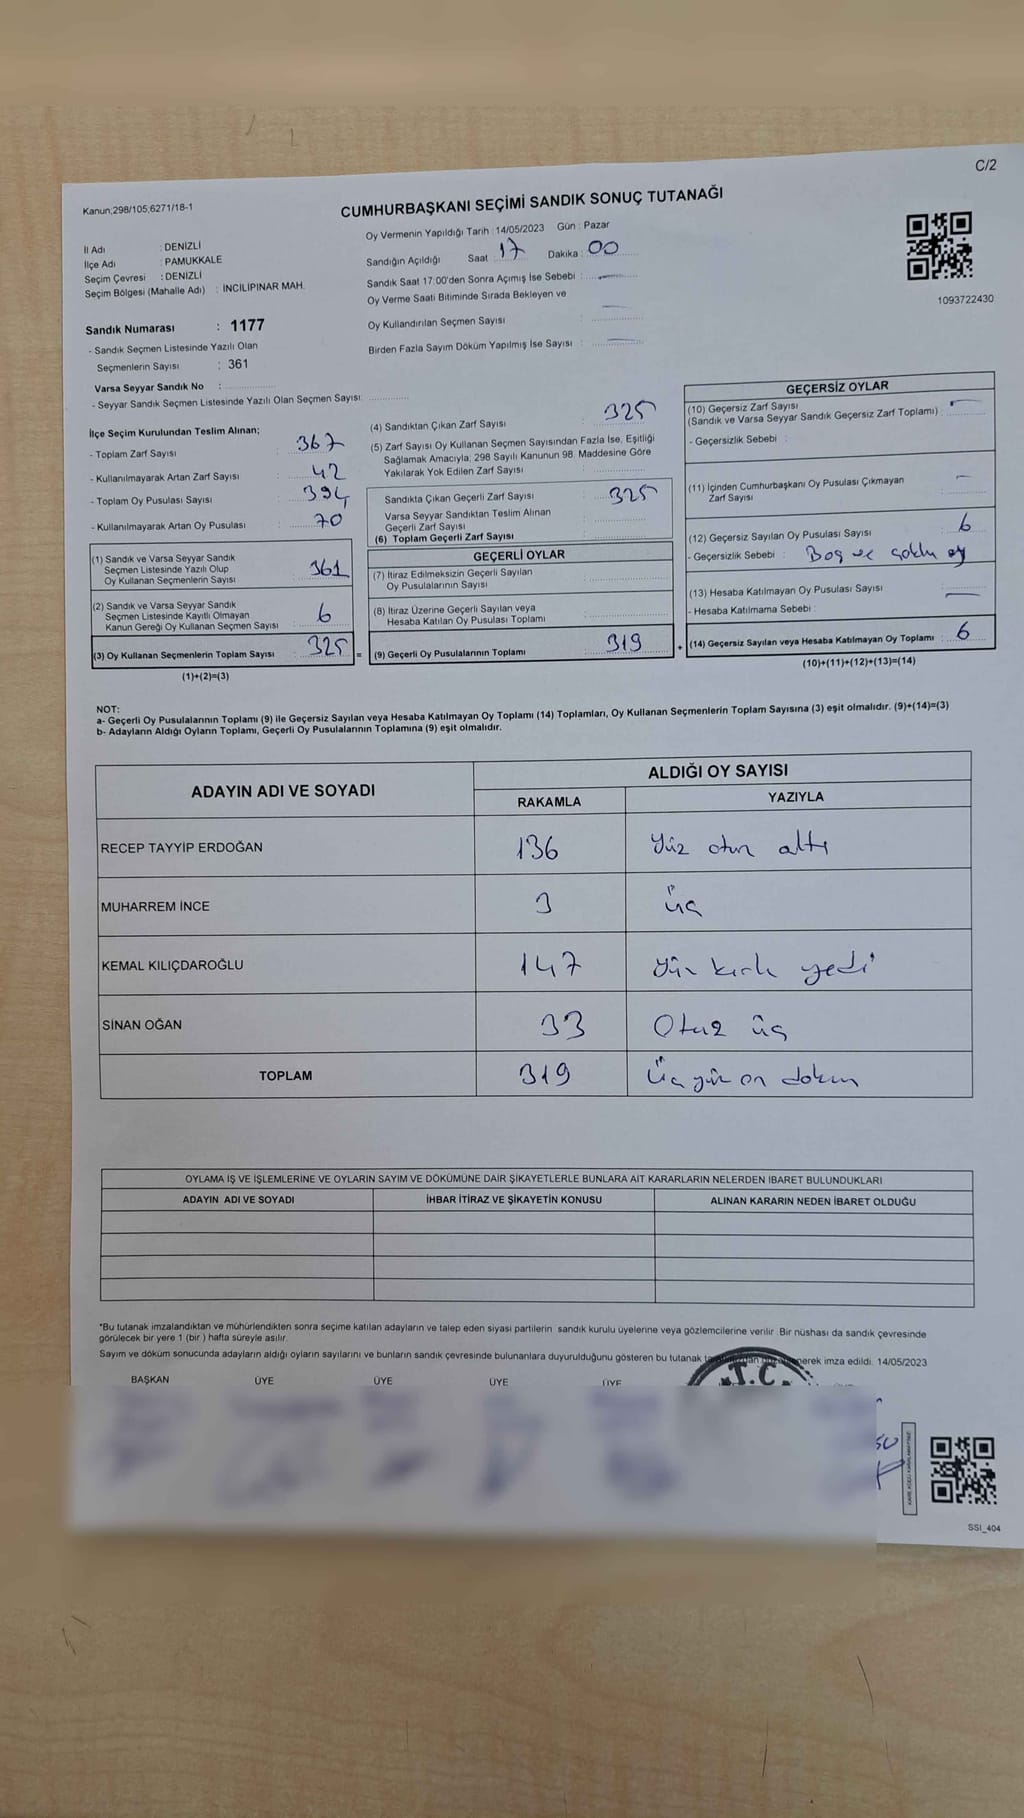 C/2
Kanun;298/105;6271/18-1
CUMHURBAŞKANI SEÇİMİ SANDIK SONUÇ TUTANAĞI
Oy Vermenin Yapıldığı Tarih : 14/05/2023 Gün : Pazar
İl Adı : DENİZLİ
İlçe Adı : PAMUKKALE
Seçim Çevresi : DENİZLİ
Seçim Bölgesi (Mahalle Adı) : İNCİLİPINAR MAH.
Sandığın Açıldığı Saat : 17 Dakika : 00
Sandık Saat 17:00'den Sonra Açımış İse Sebebi :
Oy Verme Saati Bitiminde Sırada Bekleyen ve
Oy Kullandırılan Seçmen Sayısı :
Birden Fazla Sayım Döküm Yapılmış İse Sayısı :
1093722430
Sandık Numarası : 1177
- Sandık Seçmen Listesinde Yazılı Olan
Seçmenlerin Sayısı : 361
Varsa Seyyar Sandık No :
- Seyyar Sandık Seçmen Listesinde Yazılı Olan Seçmen Sayısı:
İlçe Seçim Kurulundan Teslim Alınan;
- Toplam Zarf Sayısı : 367
- Kullanılmayarak Artan Zarf Sayısı : 42
- Toplam Oy Pusulası Sayısı : 394
- Kullanılmayarak Artan Oy Pusulası : 70
(1) Sandık ve Varsa Seyyar Sandık
Seçmen Listesinde Yazılı Olup
Oy Kullanan Seçmenlerin Sayısı : 361
(2) Sandık ve Varsa Seyyar Sandık
Seçmen Listesinde Kayıtlı Olmayan
Kanun Gereği Oy Kullanan Seçmen Sayısı : 6
(3) Oy Kullanan Seçmenlerin Toplam Sayısı : 325 =
(1)+(2)=(3)
(4) Sandıktan Çıkan Zarf Sayısı : 325
(5) Zarf Sayısı Oy Kullanan Seçmen Sayısından Fazla İse, Eşitliği
Sağlamak Amacıyla; 298 Sayılı Kanunun 98. Maddesine Göre
Yakılarak Yok Edilen Zarf Sayısı :
Sandıkta Çıkan Geçerli Zarf Sayısı : 325
Varsa Seyyar Sandıktan Teslim Alınan
Geçerli Zarf Sayısı :
(6) Toplam Geçerli Zarf Sayısı :
GEÇERLİ OYLAR
(7) İtiraz Edilmeksizin Geçerli Sayılan
Oy Pusulalarının Sayısı :
(8) İtiraz Üzerine Geçerli Sayılan veya
Hesaba Katılan Oy Pusulası Toplamı :
(9) Geçerli Oy Pusulalarının Toplamı : 319 +
GEÇERSİZ OYLAR
(10) Geçersiz Zarf Sayısı
(Sandık ve Varsa Seyyar Sandık Geçersiz Zarf Toplamı) :
- Geçersizlik Sebebi :
(11) İçinden Cumhurbaşkanı Oy Pusulası Çıkmayan
Zarf Sayısı :
(12) Geçersiz Sayılan Oy Pusulası Sayısı : 6
- Geçersizlik Sebebi : Boş ve çoklu oy
(13) Hesaba Katılmayan Oy Pusulası Sayısı :
- Hesaba Katılmama Sebebi :
(14) Geçersiz Sayılan veya Hesaba Katılmayan Oy Toplamı : 6
(10)+(11)+(12)+(13)=(14)
NOT:
a- Geçerli Oy Pusulalarının Toplamı (9) ile Geçersiz Sayılan veya Hesaba Katılmayan Oy Toplamı (14) Toplamları, Oy Kullanan Seçmenlerin Toplam Sayısına (3) eşit olmalıdır. (9)+(14)=(3)
b- Adayların Aldığı Oyların Toplamı, Geçerli Oy Pusulalarının Toplamına (9) eşit olmalıdır.
ADAYIN ADI VE SOYADI
ALDIĞI OY SAYISI
RAKAMLA YAZIYLA
RECEP TAYYİP ERDOĞAN 136 Yüz otuz altı
MUHARREM İNCE 3 üç
KEMAL KILIÇDAROĞLU 147 Yüz kırk yedi
SİNAN OĞAN 33 Otuz üç
TOPLAM 319 Üç yüz on dokuz
OYLAMA İŞ VE İŞLEMLERİNE VE OYLARIN SAYIM VE DÖKÜMÜNE DAİR ŞİKAYETLERLE BUNLARA AİT KARARLARIN NELERDEN İBARET BULUNDUKLARI
ADAYIN ADI VE SOYADI İHBAR İTİRAZ VE ŞİKAYETİN KONUSU ALINAN KARARIN NEDEN İBARET OLDUĞU
*Bu tutanak imzalandıktan ve mühürlendikten sonra seçime katılan adayların ve talep eden siyasi partilerin sandık kurulu üyelerine veya gözlemcilerine verilir. Bir nüshası da sandık çevresinde
görülecek bir yere 1 (bir ) hafta süreyle asılır.
Sayım ve döküm sonucunda adayların aldığı oyların sayılarını ve bunların sandık çevresinde bulunanlara duyurulduğunu gösteren bu tutanak imza edildi. 14/05/2023
BAŞKAN ÜYE ÜYE ÜYE ÜYE
T.C.
SSI_404